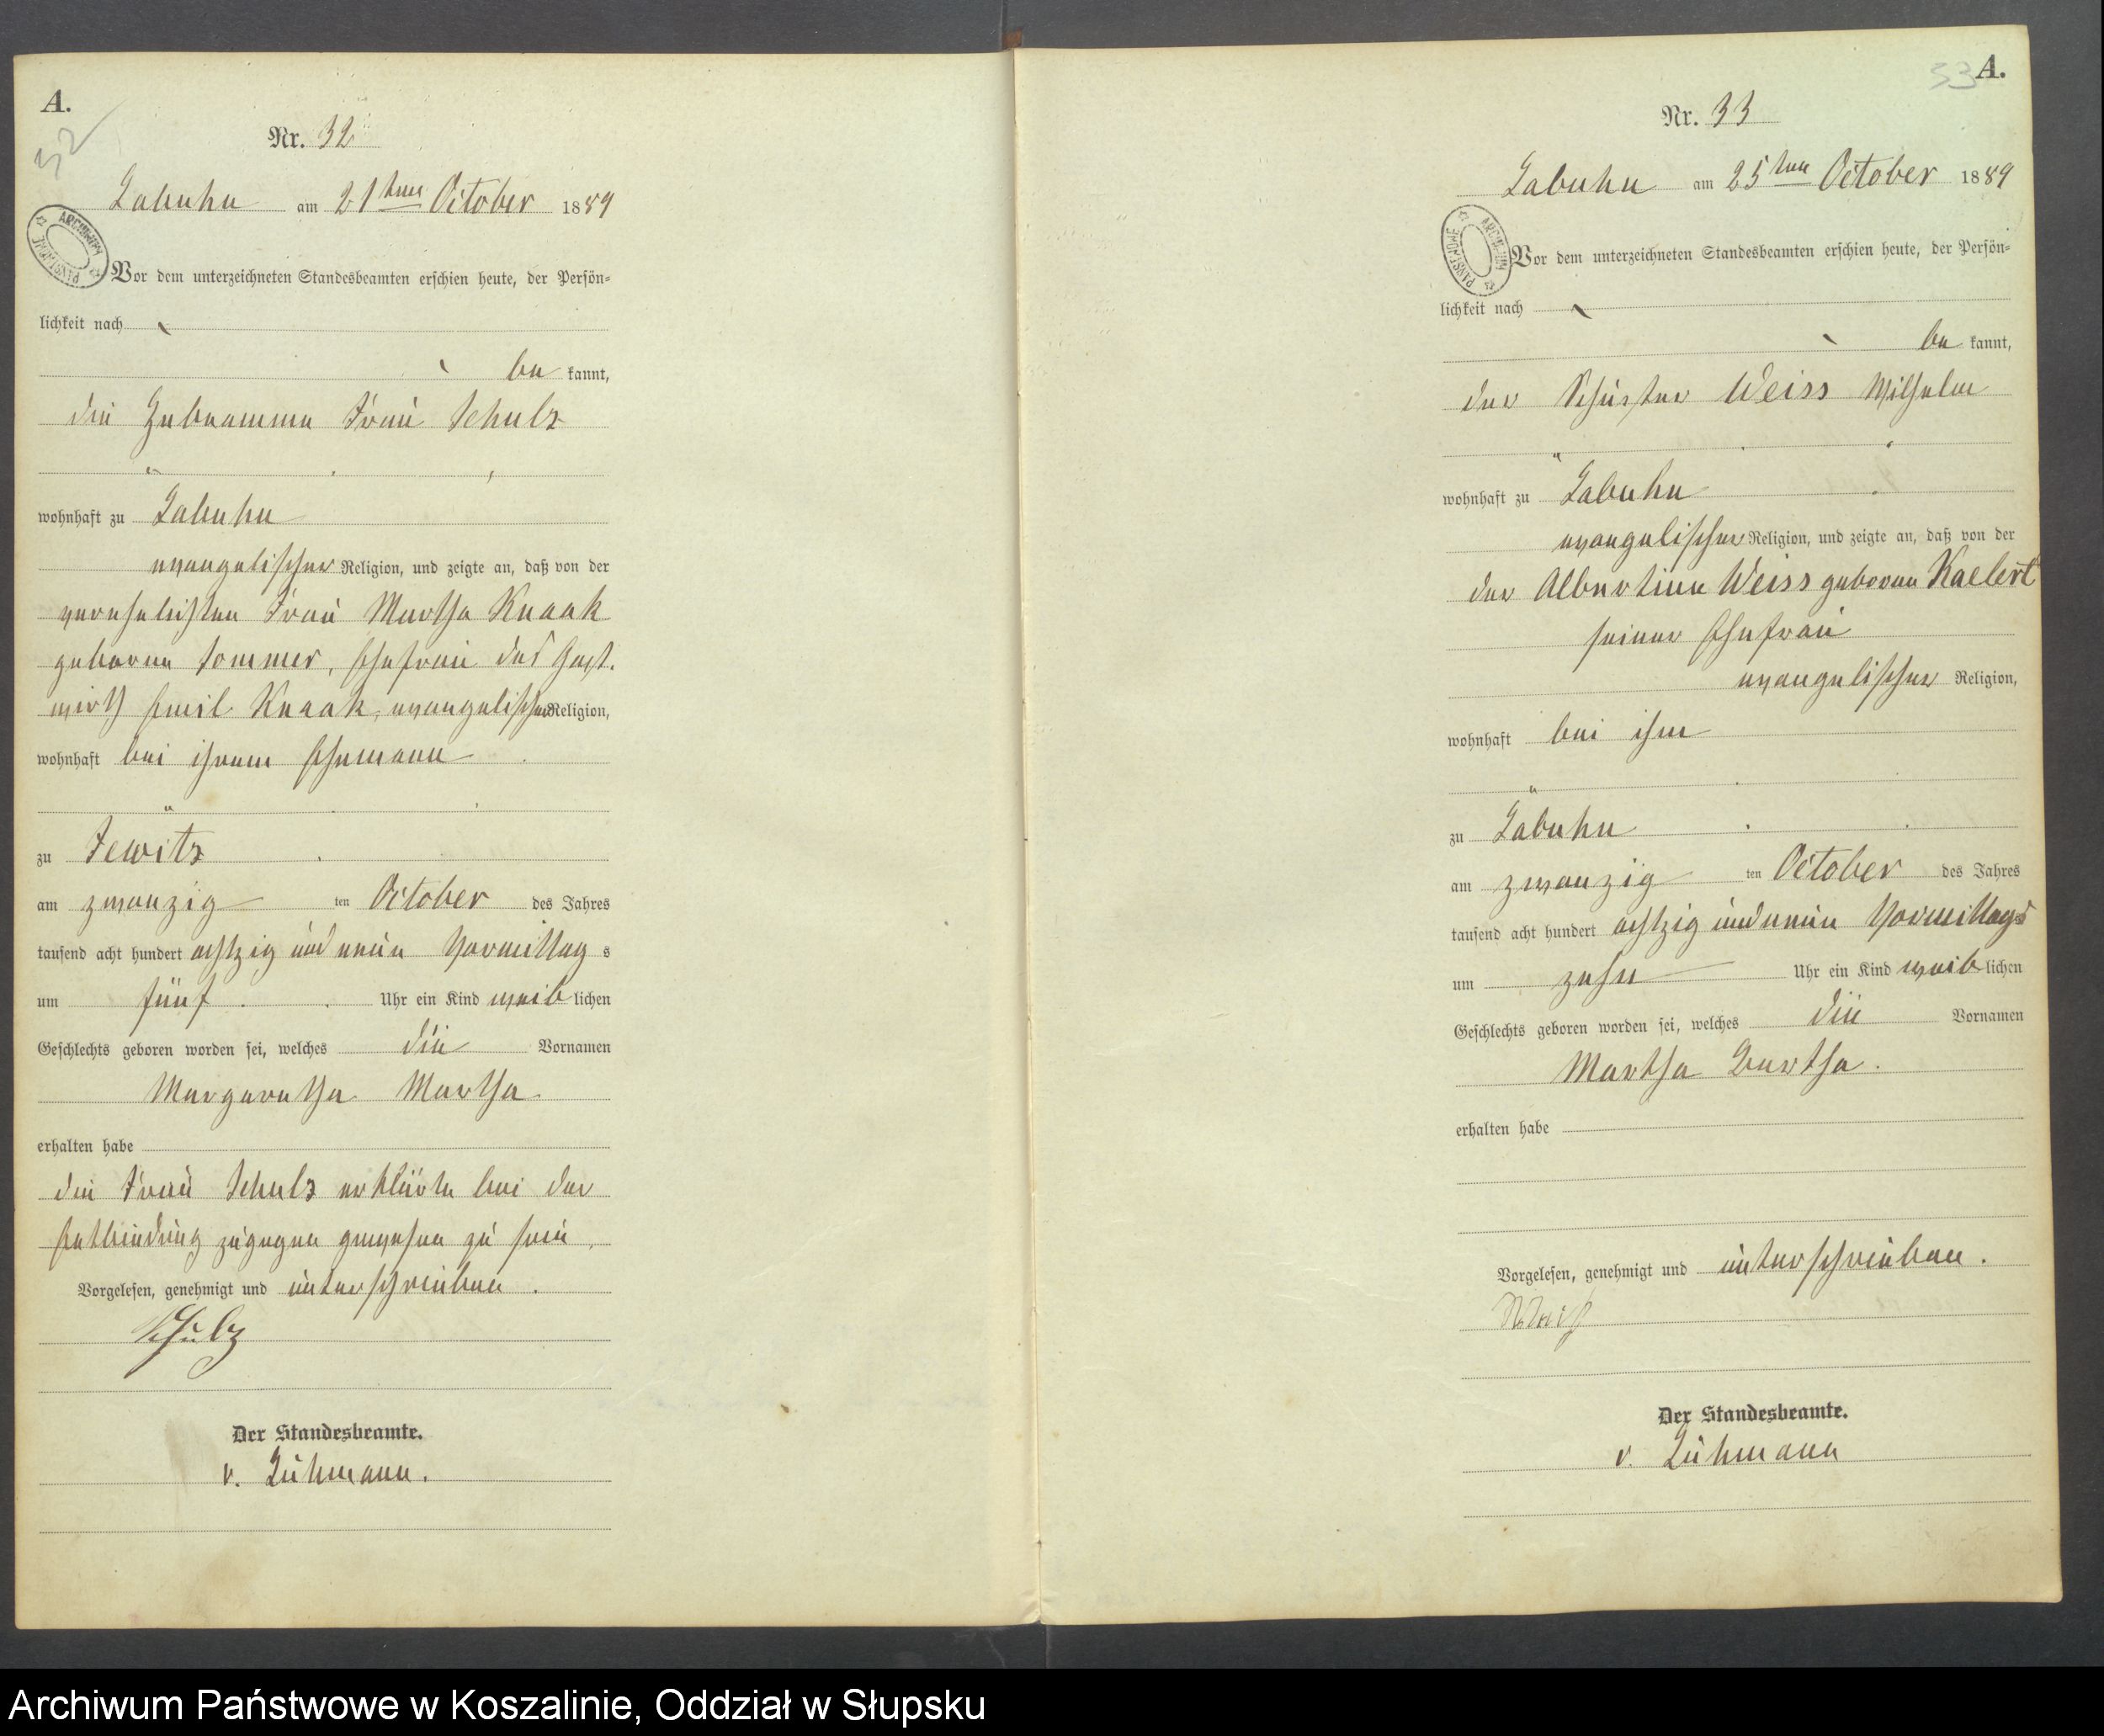 A.
32
Nr. 32
Labuhn am 21ten October 1889
ARCHIWUM PAŃSTWOWE
Vor dem unterzeichneten Standesbeamten erschien heute, der Persön-
lichkeit nach
be kannt,
die Hebeamme Frau Schulz
wohnhaft zu Labuhn
evangelischer Religion, und zeigte an, daß von der
verehelichten Frau Martha Knaak
geborene Sommer, Ehefrau des Gast.
wirth Emil Knaak, evangelischer Religion,
wohnhaft bei ihrem Ehemann
zu Jewitz
am zwanzig ten October des Jahres
tausend acht hundert achtzig und neun Vormittag s
um fünf Uhr ein Kind weib lichen
Geschlechts geboren worden sei, welches die Vornamen
Margaretha Martha
erhalten habe
die Frau Schulz erklärte bei der
Entbindung zugegen gewesen zu sein
Vorgelesen, genehmigt und unterschrieben.
Schulz
Der Standesbeamte.
v. Zühmann.
53 A.
Nr. 33
Labuhn am 25ten October 1889
ARCHIWUM PAŃSTWOWE
Vor dem unterzeichneten Standesbeamten erschien heute, der Persön-
lichkeit nach
be kannt,
der Schuster Weiss Wilhelm
wohnhaft zu Labuhn
evangelischer Religion, und zeigte an, daß von der
der Albertine Weiss geborene Kaelert
seiner Ehefrau
evangelischer Religion,
wohnhaft bei ihm
zu Labuhn
am zwanzig ten October des Jahres
tausend acht hundert achtzig und neun Vormittags
um zehn Uhr ein Kind weib lichen
Geschlechts geboren worden sei, welches die Vornamen
Martha Bertha.
erhalten habe
Vorgelesen, genehmigt und unterschrieben.
W. Weiß
Der Standesbeamte.
v. Zühmann
Archiwum Państwowe w Koszalinie, Oddział w Słupsku